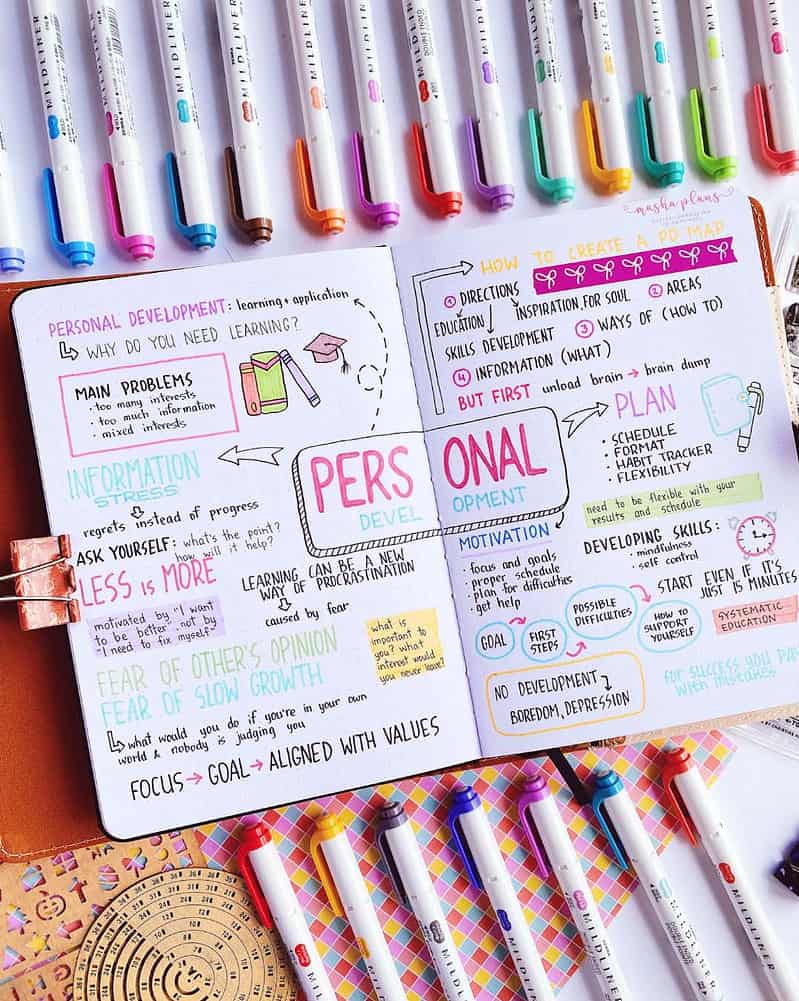 MILDLINER
MILDLINER
MILDLINER
MILDLINER
MILDLINER
MILDLINER
MILDLINER
MILDLINER
MILDLINER
MILDLINER
MILDLINER
MILDLINER
MILDLINER
masha plans
PERSONAL DEVELOPMENT: learning + application
WHY DO YOU NEED LEARNING?
MAIN PROBLEMS
• too many interests
• too much information
• mixed interests
INFORMATION
STRESS
regrets instead of progress
ASK YOURSELF: what's the point?
how will it help?
LESS is MORE
LEARNING CAN BE A NEW
WAY OF PROCRASTINATION
caused by fear
motivated by "I want
to be better" not by
"I need to fix myself"
what is
important to
you? what
interest would
you never leave?
FEAR OF OTHER'S OPINION
FEAR OF SLOW GROWTH
what would you do if you're in your own
world & nobody is judging you
FOCUS → GOAL → ALIGNED WITH VALUES
PERSONAL
DEVELOPMENT
HOW TO CREATE A PD MAP
1 DIRECTIONS
2 AREAS
EDUCATION
INSPIRATION FOR SOUL
SKILLS DEVELOPMENT
3 WAYS OF (HOW TO)
4 INFORMATION (WHAT)
BUT FIRST unload brain → brain dump
PLAN
• SCHEDULE
• FORMAT
• HABIT TRACKER
• FLEXIBILITY
need to be flexible with your
results and schedule
MOTIVATION
• focus and goals
• proper schedule
• plan for difficulties
• get help
DEVELOPING SKILLS:
• mindfulness
• self control
START EVEN IF IT'S
JUST 15 MINUTES
GOAL
FIRST
STEPS
POSSIBLE
DIFFICULTIES
HOW TO
SUPPORT
YOURSELF
SYSTEMATIC
EDUCATION
NO DEVELOPMENT
BOREDOM, DEPRESSION
for success you pay
with mistakes
MILDLINER
MILDLINER
MILDLINER
MILDLINER
MILDLINER
MILDLINER
MILDLINER